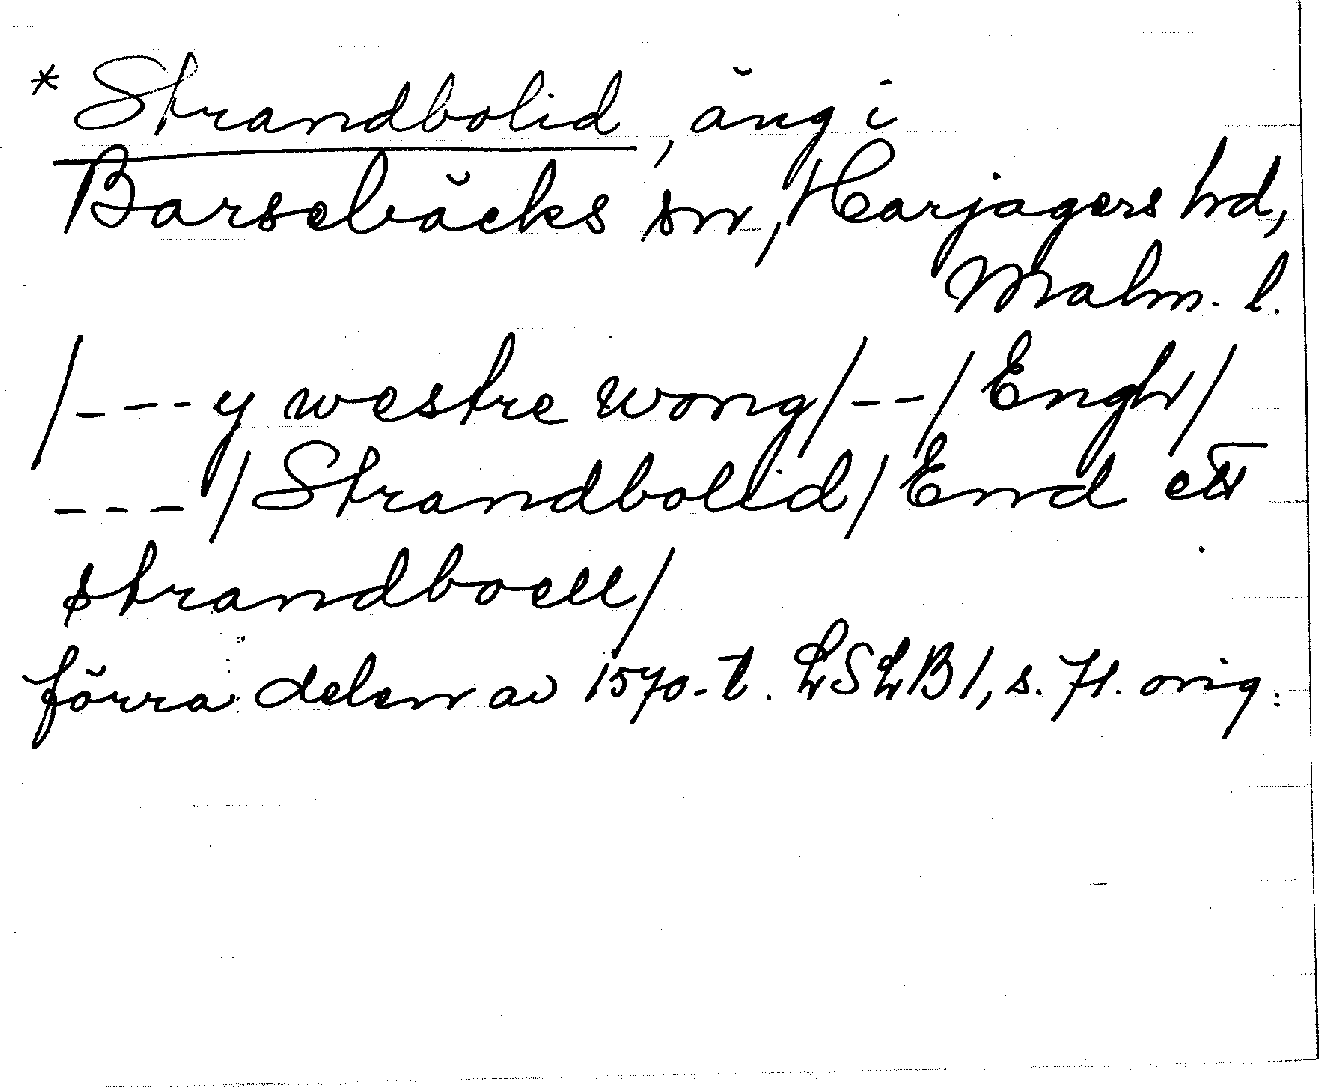 * Strandbolid, äng i
Barsebäcks sn, Harjagers hd,
Malm. l.
/---y westre wong/--/Engh/
---/Strandbolid/End ett
strandboell/
förra delen av 1570-t. LSLB1, s. 71. orig.